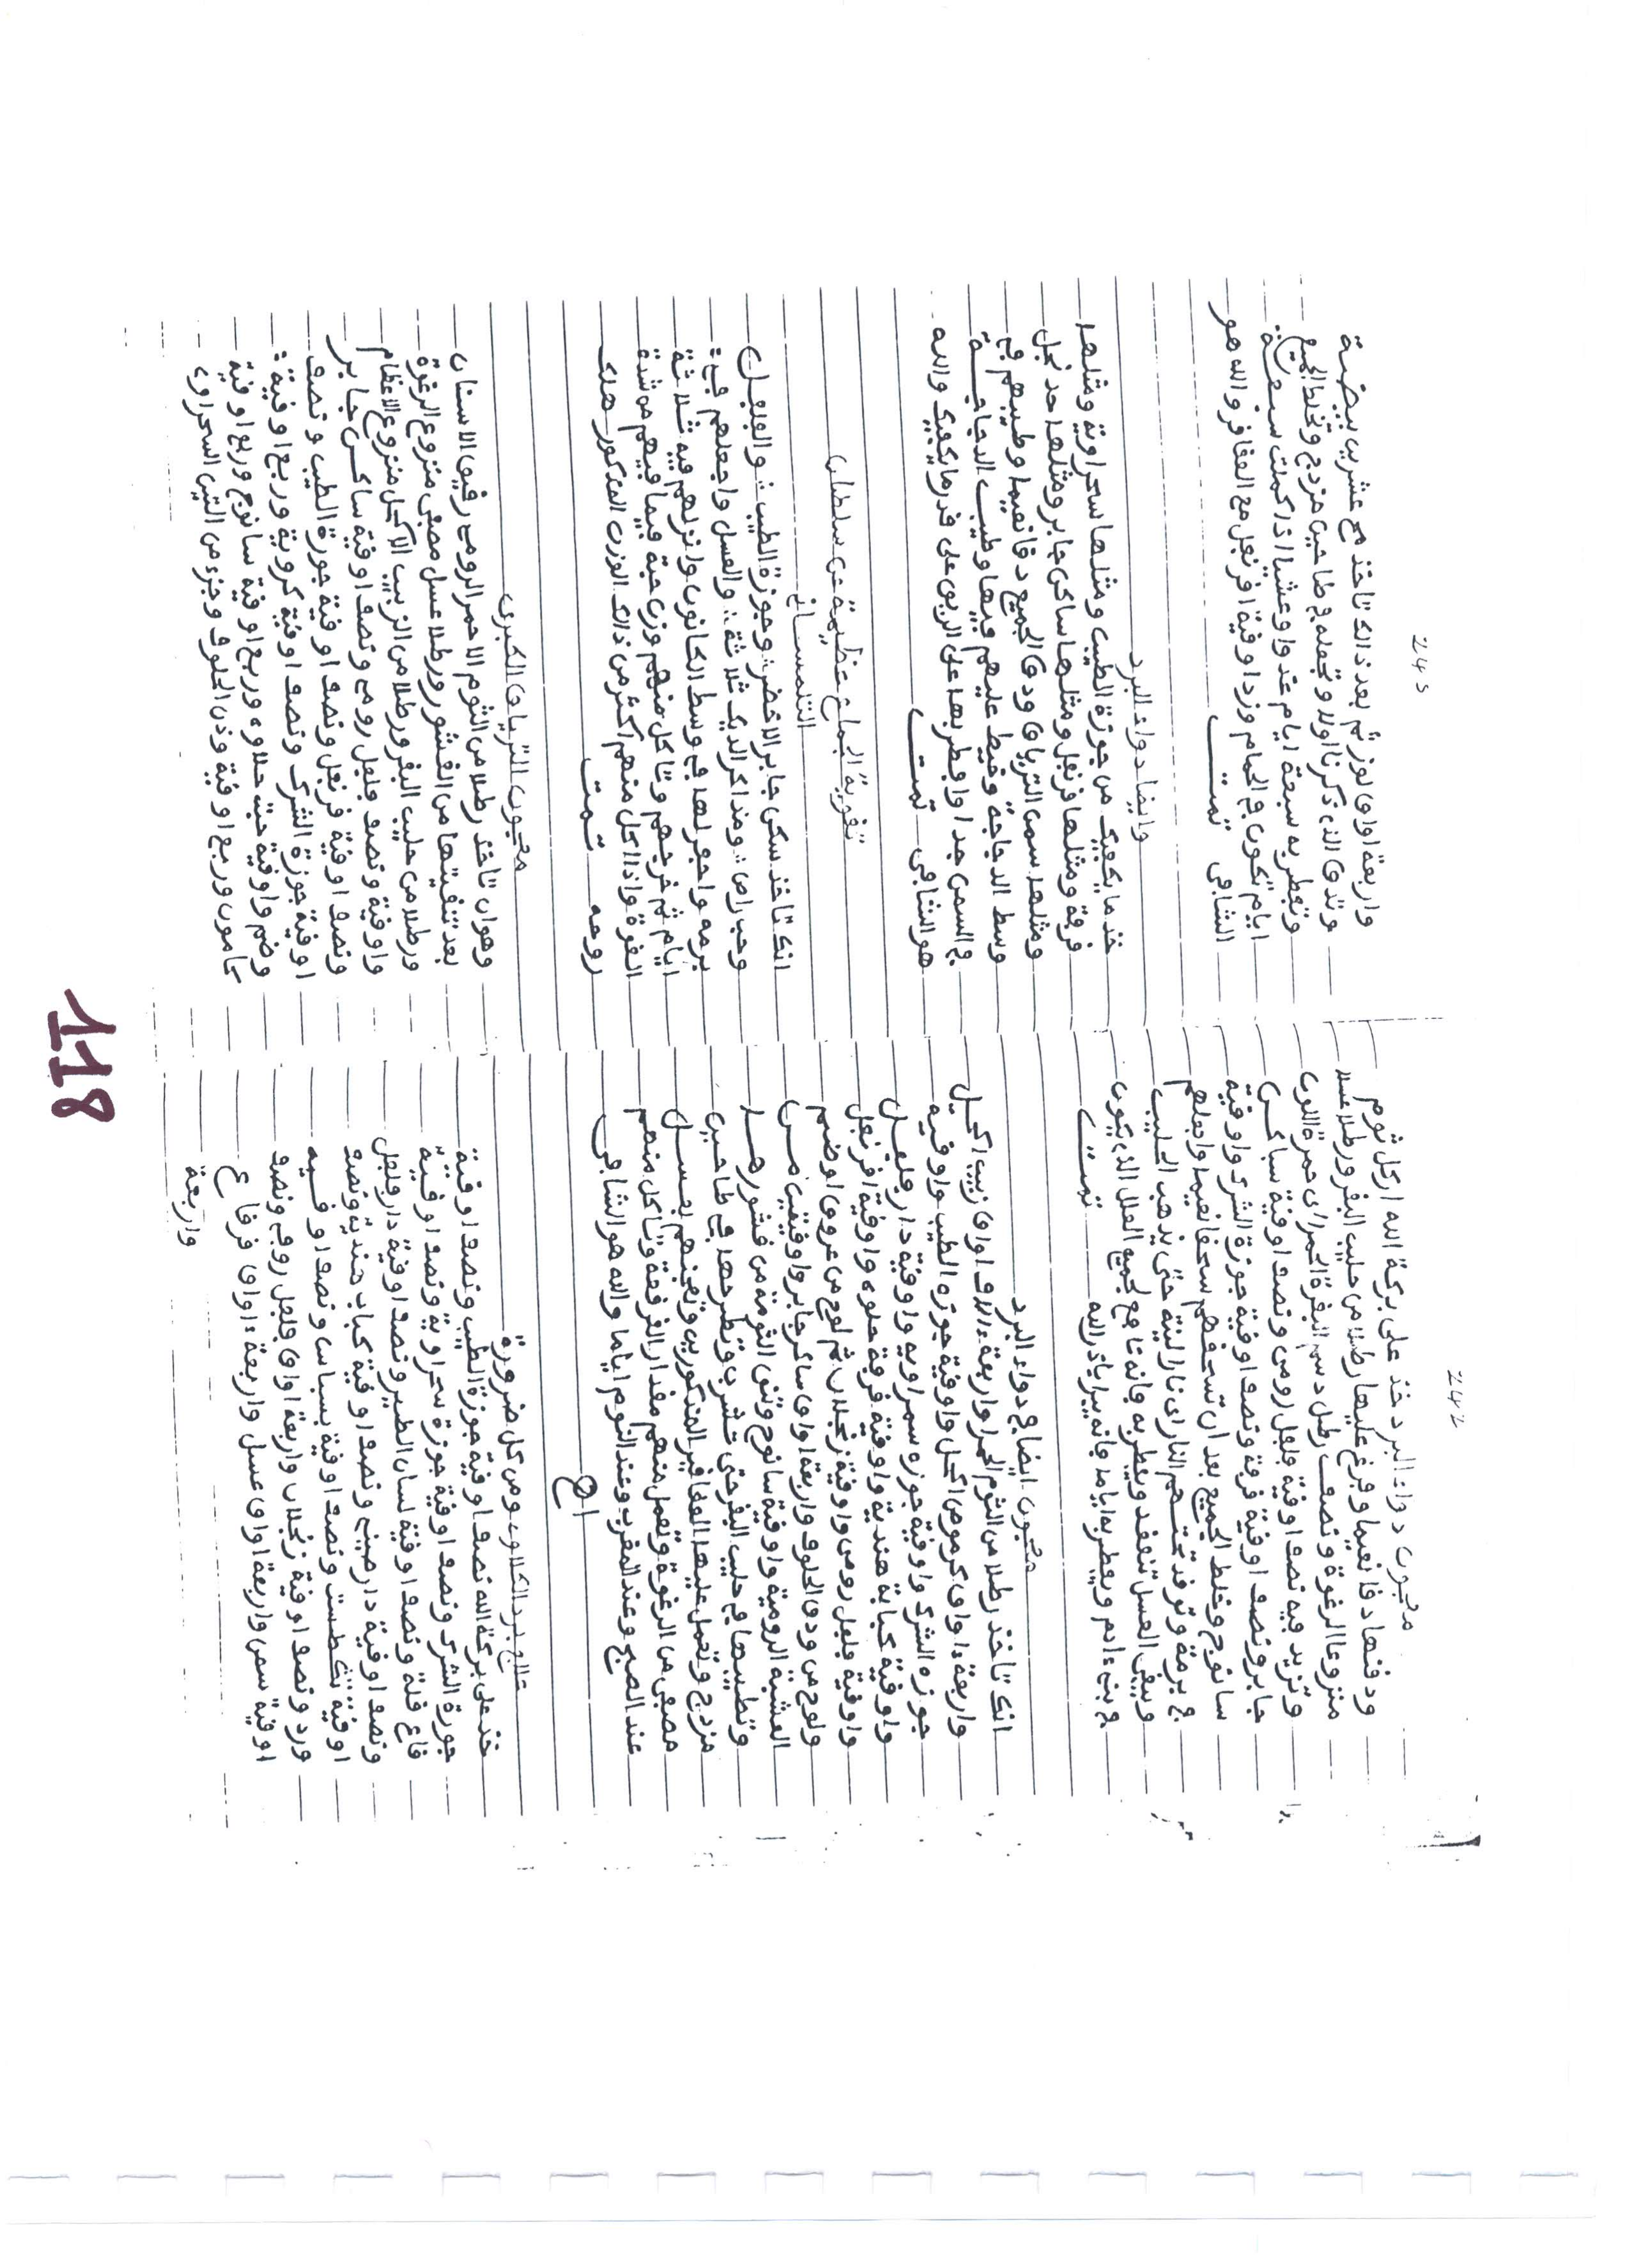 242
معجون دواء البرد خذ على بركة الله ارطل ثوم
ودقها دقا نعيما وفرغ عليها رطلا من حليب البقر ورطلا عسلا
منزوعا الرغوة ونصف رطل دسم البقرة الحمراء حمرة اللون
وتزيد فيه نصف اوقية فلفل رومي ونصف اوقية ساكن
جابر ونصف اوقية قرفة ونصف اوقية جوزة الشرك واوقية
سانوج وخلط الجميع بعد ان تسحقهم سحقا نعيما واجعلهم
في برمة وتوقد تحتهم النار نارا لينة حتى يذهب الحليب
ويبقى العسل تنعقد ويفطر به فانه نافع لجميع العلل الذي يكون
في بنء ادم ويفطر به اياما فانه يبرا باذن الله تمت
معجون ايضا في دواء البرد
انك تاخذ رطلا من الثوم الحمرا واربعة اواق زبيب اكحيل
واربعة اواق كرموص اكحل واوقية جوزة الطيب واوقية
جوزة الشرك واوقية جوزة سمراوية واوقية دار فلفل
واوقية كبابة هندية واوقية قرفة حلوه واوقية اقرنفل
واوقية فلفل رومي واوقية زنجلان ثم لوح من عروق اوضمم
ولوح من ودن الحلوف واربعة اواق ساكن جابر واوقيتين من
العشبة الرومية واوقية سانوج وتنق الثومة من قشورها
وتطيبها في حليب البقر حتى تشرب وتطرحها في طاحين
مزدج وتعمل عليها العقاقير المذكورين وتعجنهم بعسل
مصفى من الرغوة وتعمل منهم مقدار الغرفعة وتاكل منهم
عند الصبح وعند المغرب وعند النوم اياما والله هو الشافي
اهـ
علاج برد الكلاوى ومن كل ضرورة
خذ على بركة الله نصف اوقية جوزة الطيب ونصف اوقية
جوزة الشرك ونصف اوقية جوزة سحراوية ونصف اوقية
قاع قلة ونصف اوقية لسان الطير ونصف اوقية دار فلفل
ونصف اوقية دارصيني ونصف اوقية كباب هندية ونصف
اوقية بسطت ونصف اوقية بسباس ونصف اوقيه
ورد ونصف اوقية زنجلان واربعة اواق فلفل رومي ونصف
اوقية سمن واربعة اواق عسل واربعة ءاواق قرفا ع
واربعة
245
واربعة اواق لوز ثم بعد ذالك تاخذ مح عشرين بيضة
وتدق الذي ذكرنا اولا وتجعله في طاحين مزدج وتخلط الجميع
وتفطر به سبعة ايام غدا وعشا اذا كملت سبعة
ايام تكون في الحمام وزد اوقية اقرنفل مع العقاقر والله هو
الشافي تمت
وايضا دواء البرد
خذ ما يكفيك من جوزة الطيب ومثلها سحراوية ومثلها
قرفة ومثلها قرنفل ومثلها ساكن جابر ومثلها حد نجل
ومثلها سمن الترياق ودق الجميع دقا نعيما وطيبهم في
وسط الدجاجة وخيط عليهم فيها وطيب الدجاجة
في السمن جدا وافطر بها على الريق على قدر ما يكفيك والله
هو الشافي تمت
تقوية الجماع عظيمة عن سلطان
التلمسان
انك تاخذ سكن جابر الاخضر وجوزة الطيب والفلفل
وحب راس ومذاكر الديك ثلاثة والعسل واجعلهم في
برمه واحفر لها في وسط الكانون واتركهم فيه ثلاثة
ايام ثم خرجهم وتاكل منهم وزن حبة فيما فيهم من شدة
القوة واذا اكل منهم اكثر من ذالك الوزن المذكور هلك
روحه تمت
معجون الترياق الكبرى
وهو ان تاخذ رطلا من الثوم الاحمر الرومي رقيق الاسنان
بعد تنقيتها من القشور ورطلا عسل مصفى منزوع الرغوة
ورطلا من حليب البقر ورطلا من الزبيب الاكحل منزوع الاعظام
واوقية ونصف فلفل رومي ونصف اوقية ساكن جابر
ونصف اوقية قرنفل ونصف اوقية جوزة الطيب ونصف
اوقية جوزة الشرك ونصف اوقية كروية وربع اوقية
وضم واوقية حبة حلاوه وربع اوقية سانوج وربع اوقية
كامون وربع اوقية وذن الحلوف وجزء من التين السحراوي
118